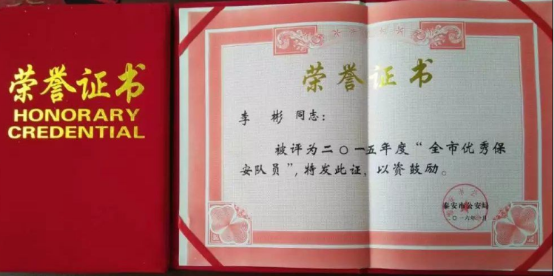 荣誉证书
HONORARY
CREDENTIAL
荣誉证书
李彬 同志：
被评为二〇一五年度“全市优秀保
安队员”，特发此证，以资鼓励。
泰安市公安局